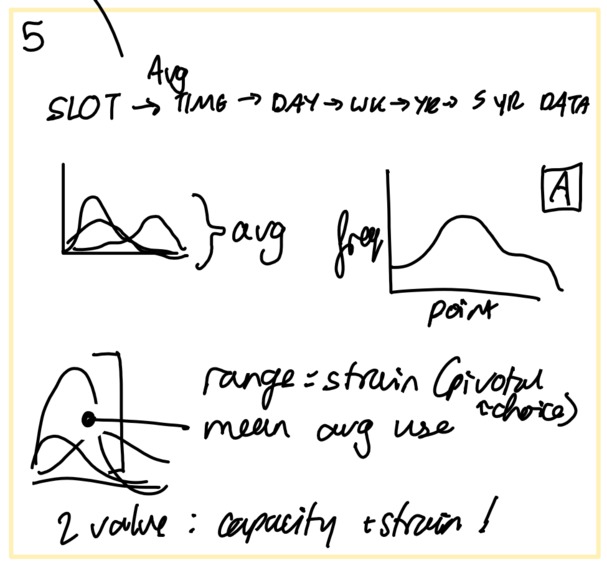 5
Avg
SLOT → TIME → DAY → WK → YR → 5 YR DATA
A
avg
freq
point
range = strain (pivotal
choice)
mean avg use
2 value : capacity + strain !